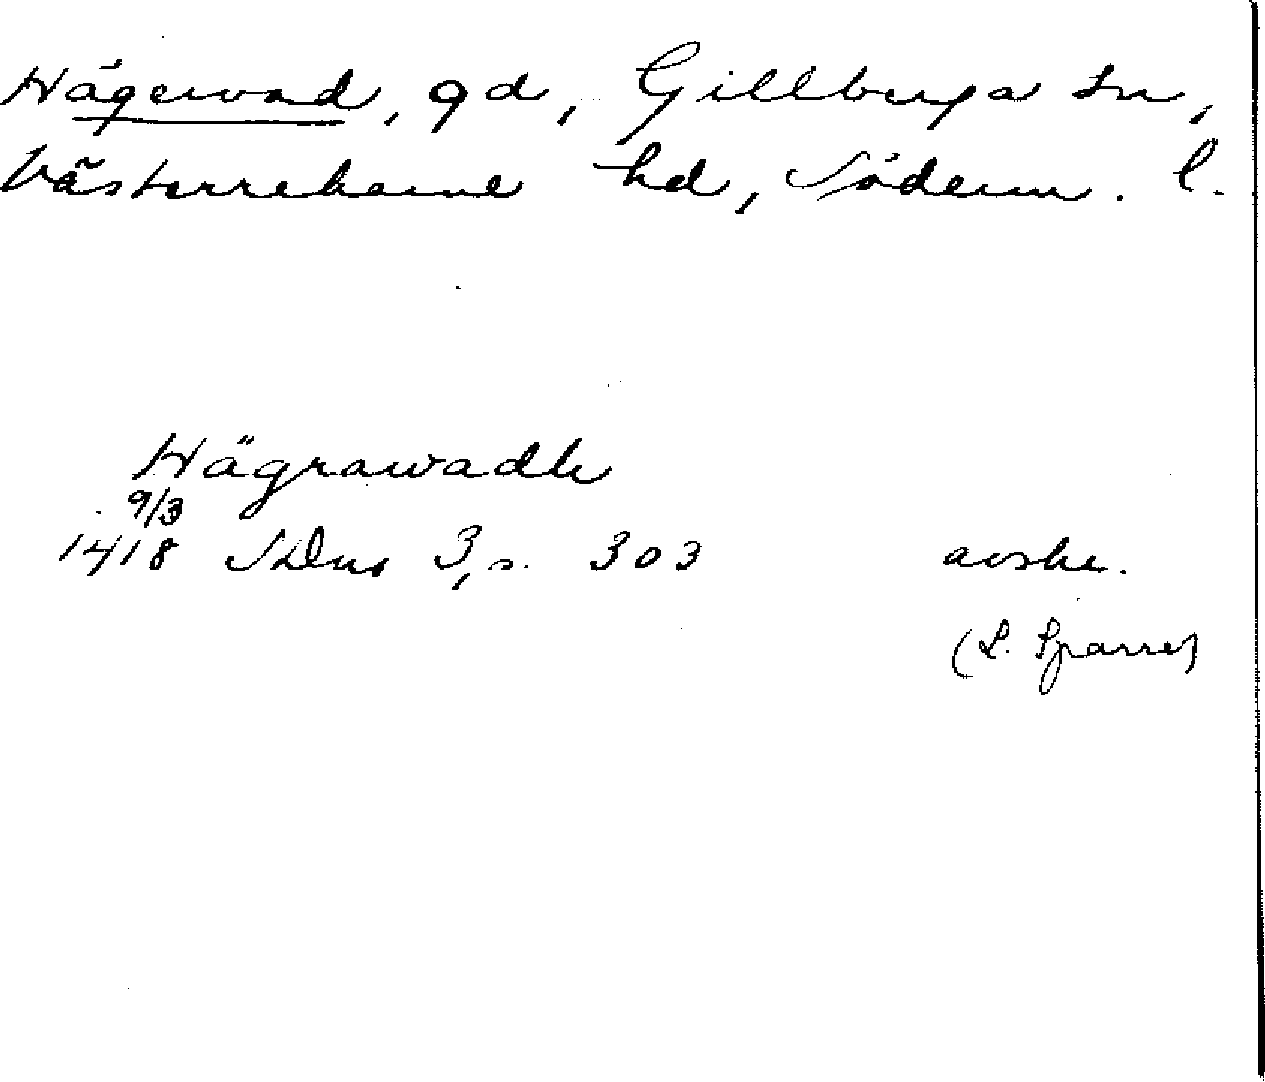 Hägervad, gd, Gillberga sn,
Västerrekarne hd, Söderm. l.
Hägrawadh
9/3
1418 SDns 3, s. 303 avskr.
(L. Sparre)